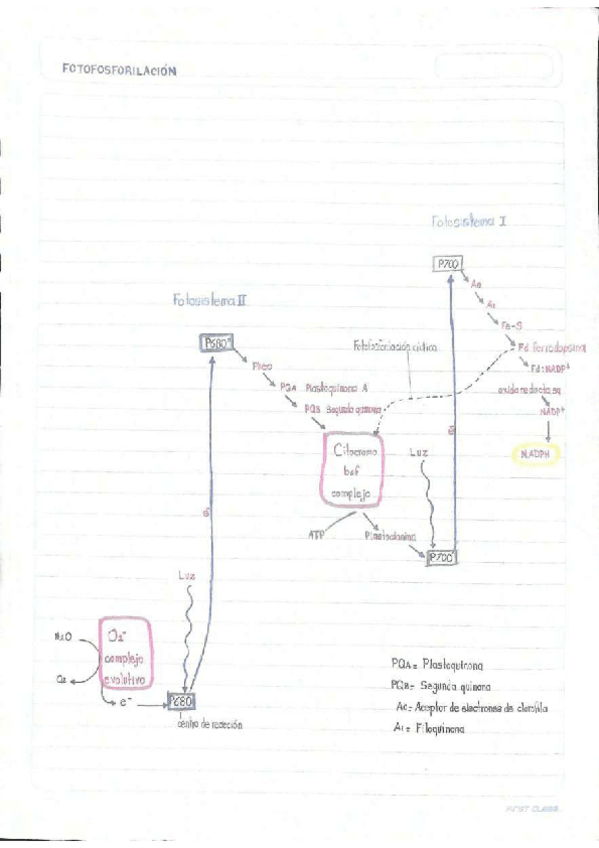 FOTOFOSFORILACIÓN
Fotosistema I
P700
Ao
A1
Fe-S
Fd ferrodoxina
Fd:NADP+
oxidoreductasa
NADP+
NADPH
Fotosistema II
P680*
Feo
PQA Plastoquinona A
PQB Segunda quinona
Fotofosforilación cíclica
Citocromo
b6f
complejo
Luz
ATP
Plastocianina
P700
e-
e-
Luz
H2O
O2-
complejo
evolutivo
O2
e-
P680
centro de reacción
PQA= Plastoquinona
PQB= Segunda quinona
Ao= Aceptor de electrones de clorofila
A1= Filoquinona
FIRST CLASS